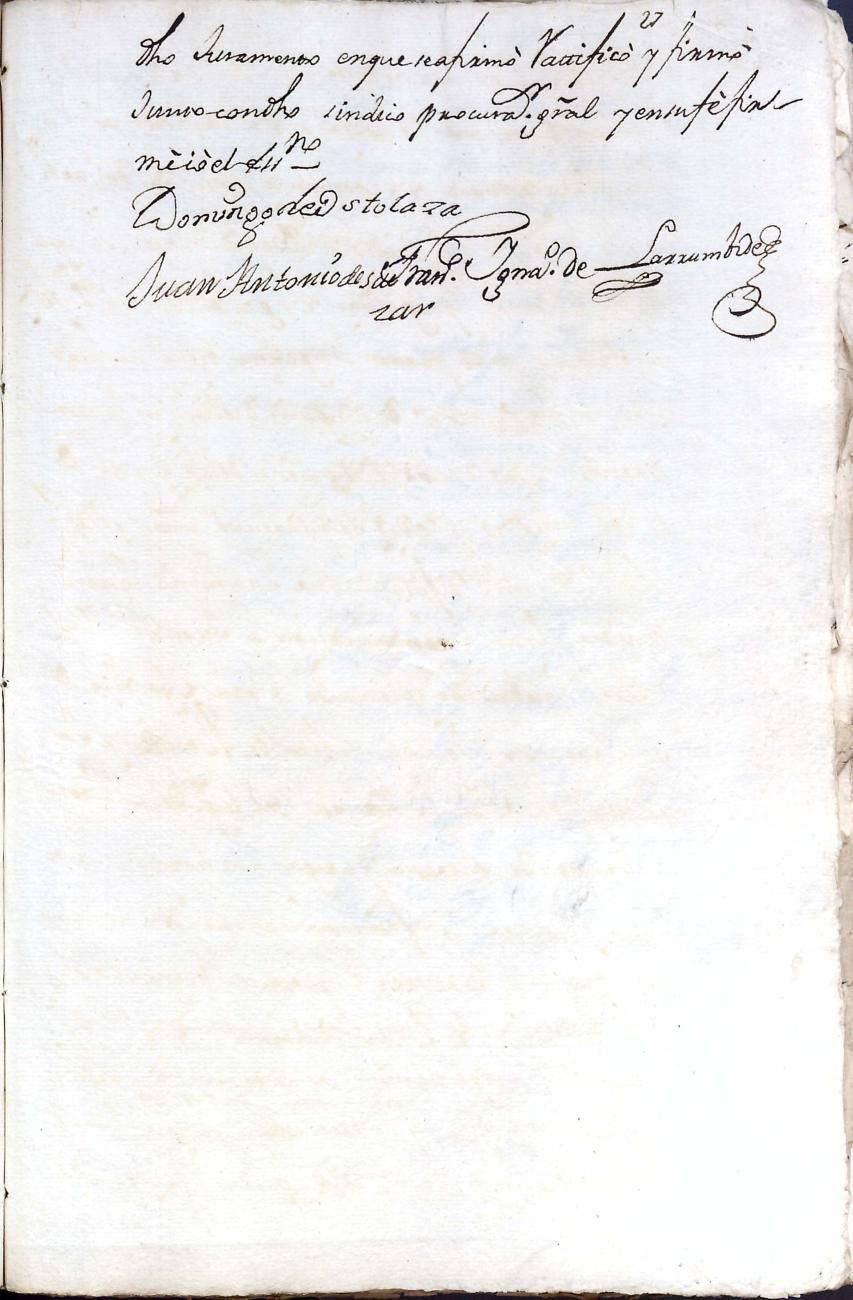 27
dho Juramento en que se afirmò Ratificò y firmò
Junto con dho sindico procurador. gral y en su fè fir-
mè iò el essno
Domingo de Ostolaza
Juan Antonio de Fran.co Ignao. de Larrumbide
zar